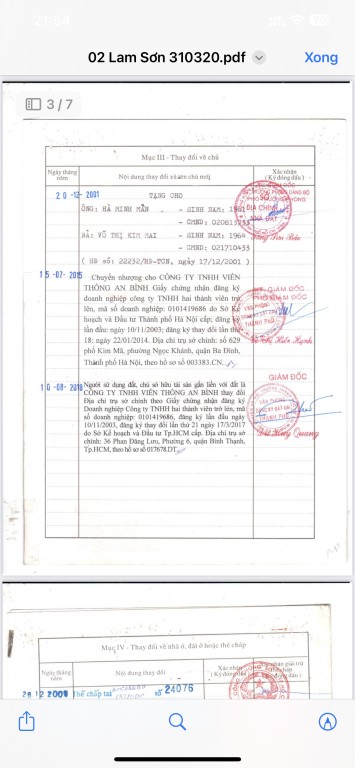 21:54
02 Lam Sơn 310320.pdf
Xong
3 / 7
Mục III - Thay đổi về chủ
Ngày tháng năm
Nội dung thay đổi và tên chủ mới
Xác nhận
(Ký đóng dấu)
20-12-2001
TẶNG CHO
ÔNG: HÀ MINH MẪN - SINH NAM: 1961
- CMND: 020813733
BÀ: VÕ THỊ KIM MAI - SINH NAM: 1964
- CMND: 021710433
( HĐ số: 22232/HĐ-TCN, ngày 17/12/2001 )
15-07-2015
Chuyển nhượng cho CÔNG TY TNHH VIỄN
THÔNG AN BÌNH Giấy chứng nhận đăng ký
doanh nghiệp công ty TNHH hai thành viên trở
lên, mã số doanh nghiệp: 0101419686 do Sở Kế
hoạch và Đầu tư Thành phố Hà Nội cấp, đăng ký
lần đầu: ngày 10/11/2003; đăng ký thay đổi lần thứ
18: ngày 22/01/2014. Địa chỉ trụ sở chính: số 629
phố Kim Mã, phường Ngọc Khánh, quận Ba Đình,
Thành phố Hà Nội, theo hồ sơ số 003383.CN.
PHÓ GIÁM ĐỐC
10-08-2018
Người sử dụng đất, chủ sở hữu tài sản gắn liền với đất là
CÔNG TY TNHH VIỄN THÔNG AN BÌNH thay đổi
Địa chỉ trụ sở chính theo Giấy chứng nhận đăng ký
Doanh nghiệp Công ty TNHH hai thành viên trở lên, mã
số doanh nghiệp: 0101419686, đăng ký lần đầu ngày
10/11/2003, đăng ký thay đổi lần thứ 21 ngày 17/3/2017
do Sở Kế hoạch và Đầu tư Tp.HCM cấp. Địa chỉ trụ sở
chính: 36 Phan Đăng Lưu, Phường 6, quận Bình Thạnh,
Tp.HCM, theo hồ sơ số 017678.DT.
GIÁM ĐỐC
Mục IV - Thay đổi về nhà ở, đất ở hoặc thế chấp
Ngày tháng năm
Nội dung thay đổi
Xác nhận
(Ký đóng dấu)
Thế chấp tại
số 24076